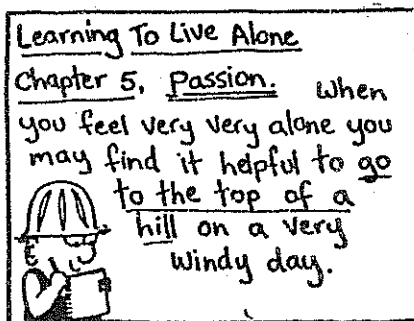 Learning To Live Alone
Chapter 5, Passion. When
you feel very very alone you
may find it helpful to go
to the top of a
hill on a very
windy day.